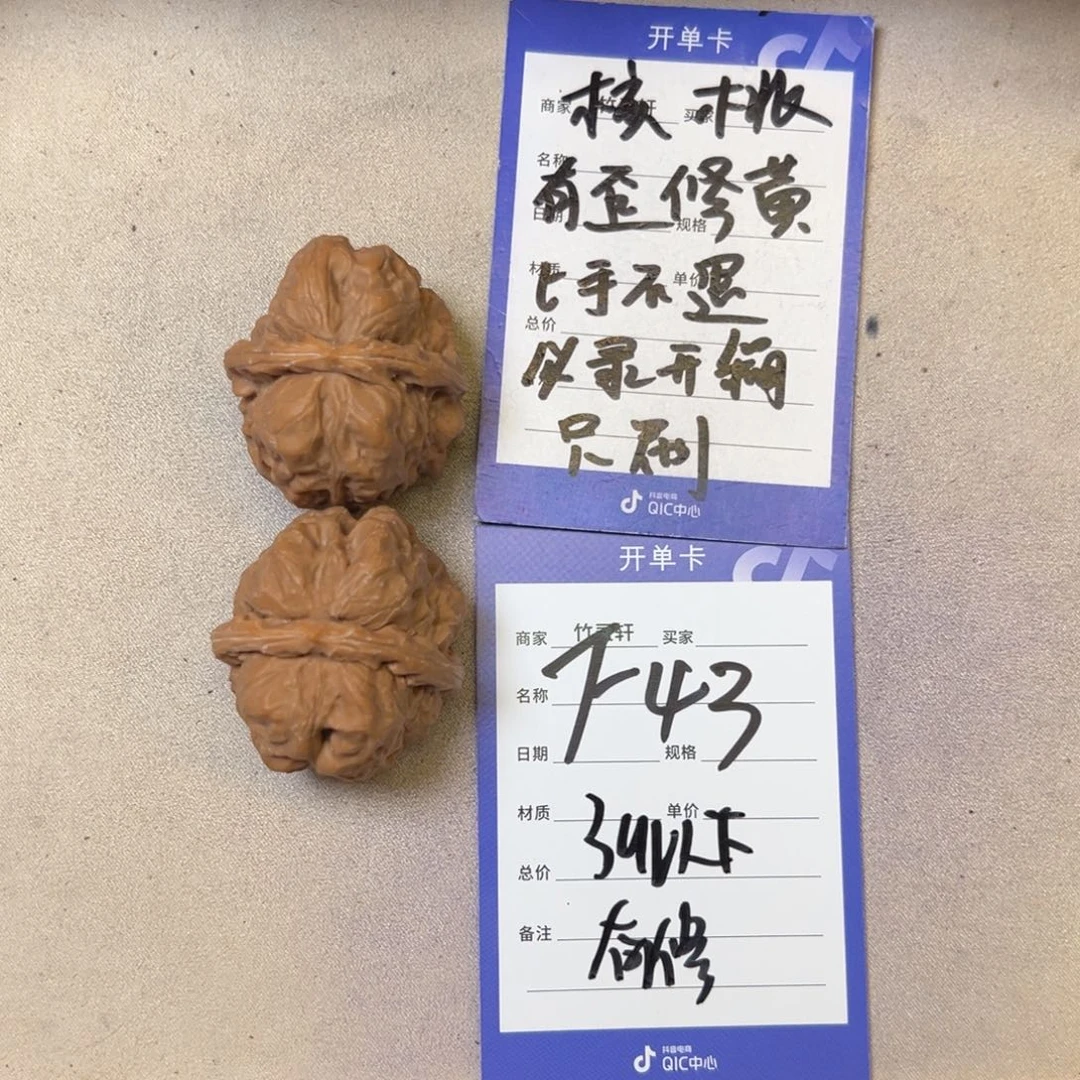 开单卡
核桃
商家 竹灵轩 买家
名称
有歪修黄
日期 规格
材质 单价
上手不退
总价
必录开箱
只刷
抖音电商
QIC中心
开单卡
商家 竹灵轩 买家
名称
F43
日期 规格
材质 单价
34以下
总价
备注
有修
抖音电商
QIC中心